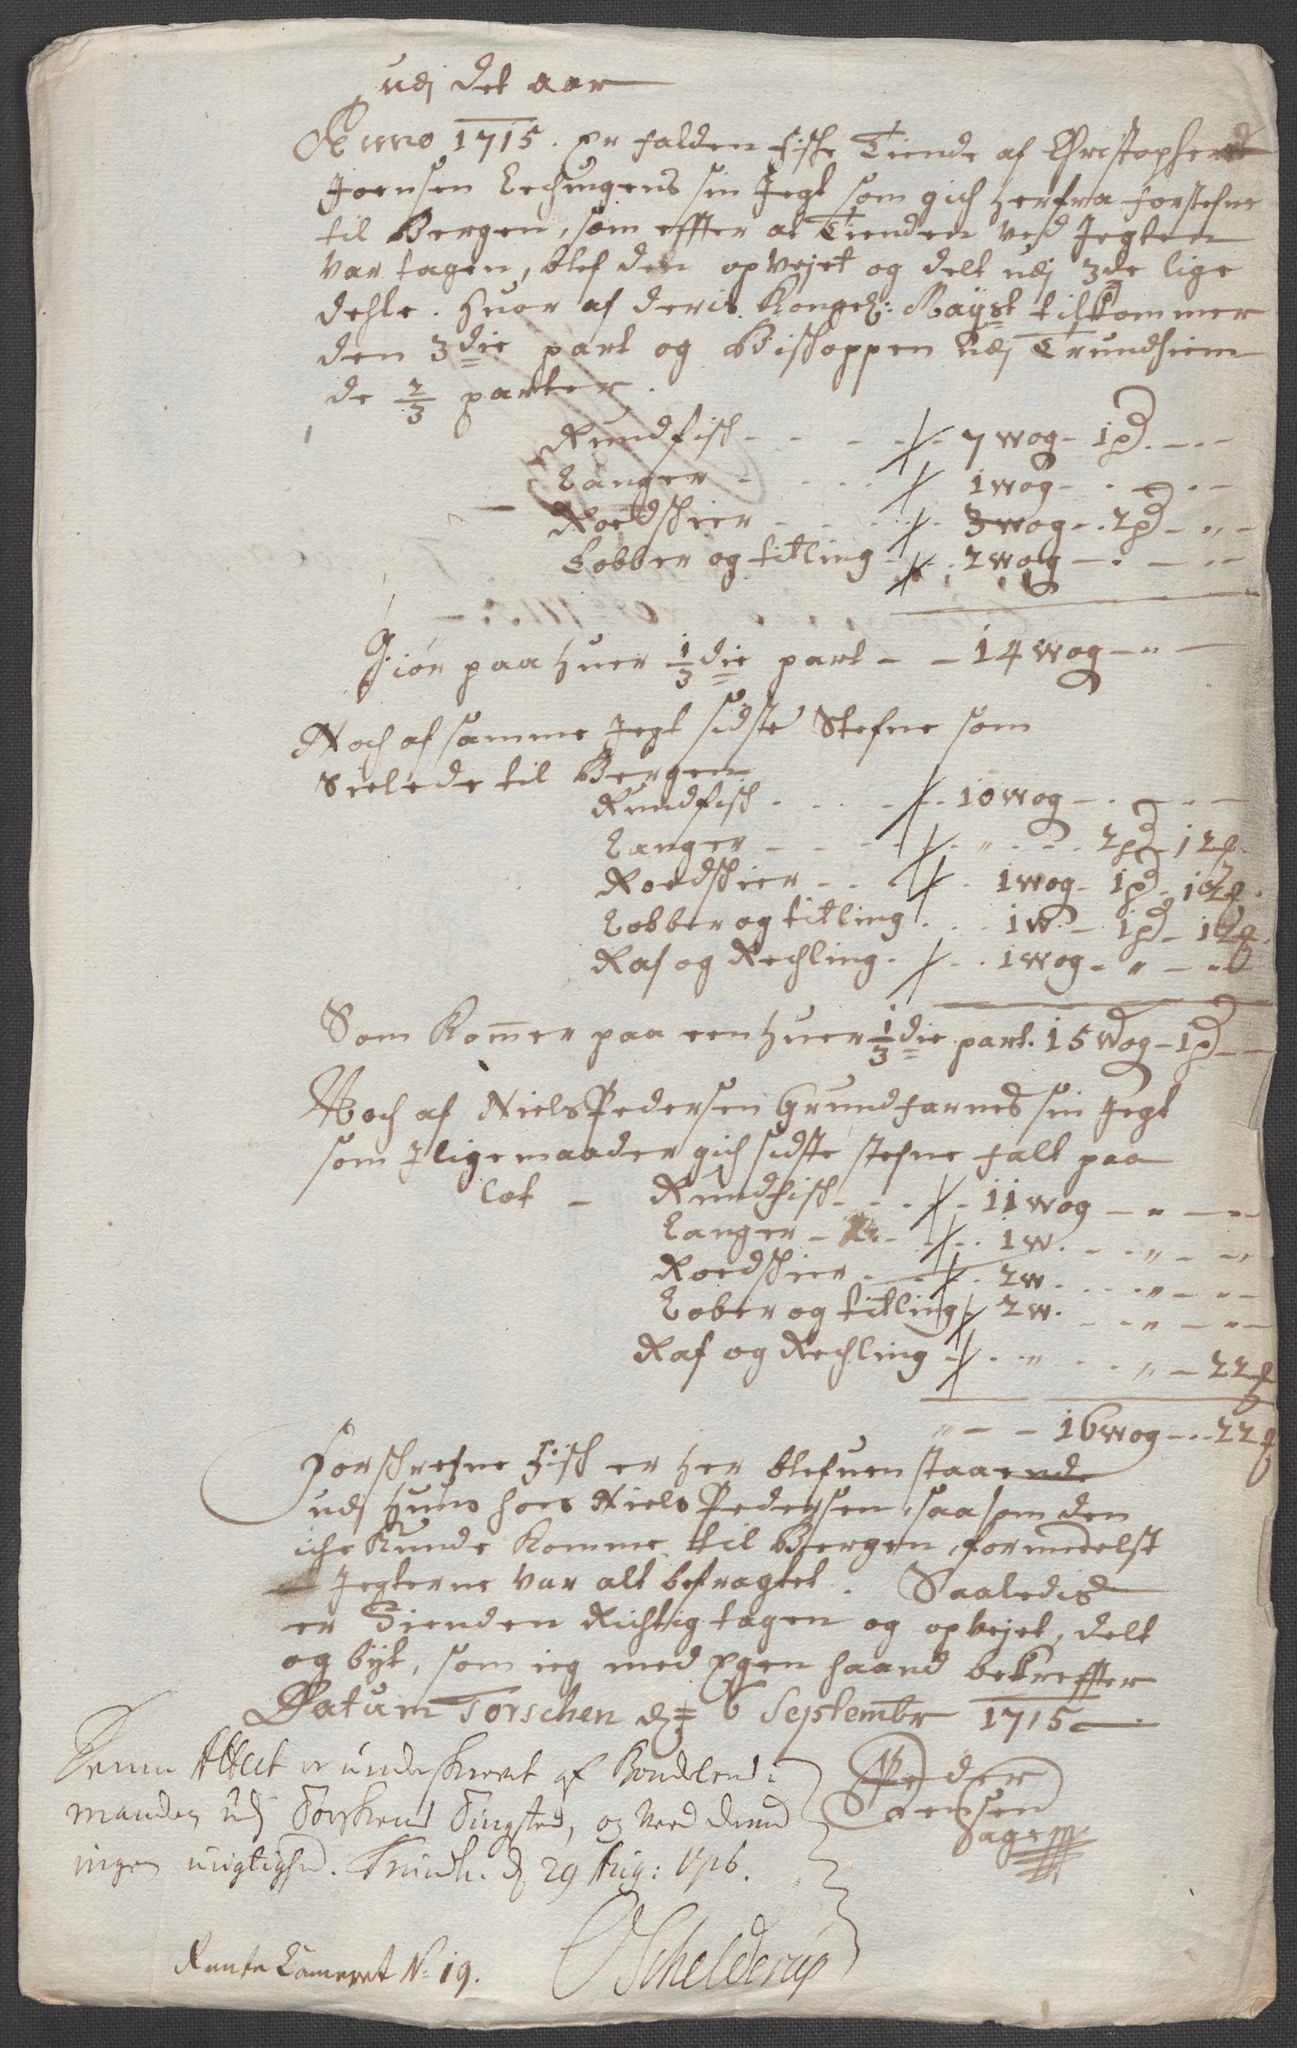 udj det aar
Anno 1715. Er falden fiske Tiende af Christopher
Joensen Lechungens sin Jegt som gich herfra forstefne
til Bergen, som effter at Tienden ved Jegten
var tagen, blef den opvejet og delt udj 3de lige
dehle. Huor af deris Kongel: Mayst tilkommer
den 3die part og Bischoppen udj Trundhiem
de 2/3 parter.
Rundfisch - - - 7 wog - 1 pd - -
Langer - - - 1 wog - - -
Roedschier - - - 3 wog - 2 pd - „ -
Lobber og titling - 2 wog - - -
Giør paa huer 1/3 die part - - 14 wog - „ -
Noch af samme Jegt sidste Stefne som
Seilede til Bergen
Rundfisch - - - 10 wog - - -
Langer - - - „ - - 2 pd - 12 #.
Roedschier - - - 1 wog - 1 pd - 12 #.
Lobber og titling - - 1 w. - 1 pd - 12 #.
Raf og Rechling - - - 1 wog - „ - „
Som Kommer paa een huer 1/3 die part. 15 wog - 1 pd - -
Noch af Niels Pedersen Grundfarnes sin Jegt
som J lige maader gich sidste stefne falt paa
lot - Rundfisch - - - 11 wog - „ - „
Langer - - - 1 w. - „ - „
Roedschier - - - 2 w. - „ - „
Lober og titling - 2 w. - „ - „
Raf og Rechling - - „ - - „ - 22 #
„ - - 16 wog - - 22 #
Forschrefne Fisch er her blefuen staaende
udj huus hoes Niels Pedersen, saasom den
iche Kunde Komme til Bergen, formedelst
Jegterne var alt befragtet. Saaledis
er Tienden Richtig tagen og opvejet, delt
og byt, som ieg med Egen haand bekreffter
Datum Torschen d: 6 Septembr 1715
Peder
Jenssen
Denne Attest er underskrevet af Bondelens-
manden udj Torskens Tingsted, og Veed derved
ingen urigtighed. Trundh. d 29 Aug: 1716.
OSchelderup
Rente Cameret No 19.